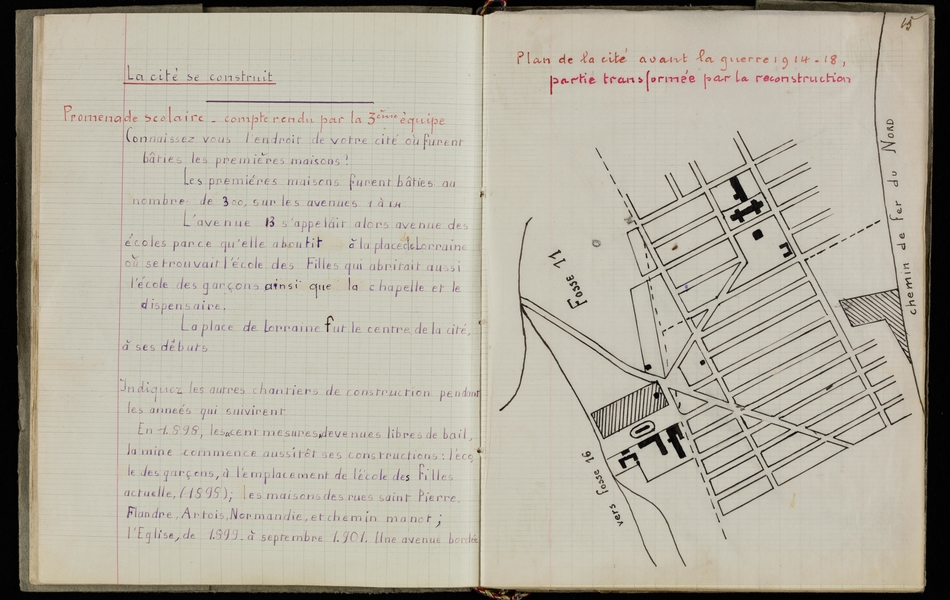 La cité se construit
Promenade scolaire - compte rendu par la 3ème équipe
Connaissez vous l'endroit de votre cité où furent
bâties les premières maisons !
Les premières maisons furent bâties au
nombre de 300, sur les avenues 1 à
L'avenue 13 s'appelait alors avenue des
écoles parce qu'elle aboutit à la place de Lorraine
où se trouvait l'école des Filles qui abritait aussi
l'école des garçons ainsi que la chapelle et le
dispensaire.
La place de Lorraine fut le centre de la cité,
à ses débuts
Indiquez les autres chantiers de construction pendant
les anneés qui suivirent
En 1898, les cent mesures devenues libres de bail,
la mine commence aussitôt ses constructions : l'éco
le des garçons, à l'emplacement de l'école des Filles
actuelle, (1898) ; les maisons des rues saint Pierre,
Flandre, Artois, Normandie, et chemin manot ;
l'Eglise, de 1899 à septembre 1901. Une avenue bordée
15
Plan de la cité avant la guerre 1914-18,
partie transformée par la reconstruction
Fosse 11
chemin de fer du NORD
vers fosse 16